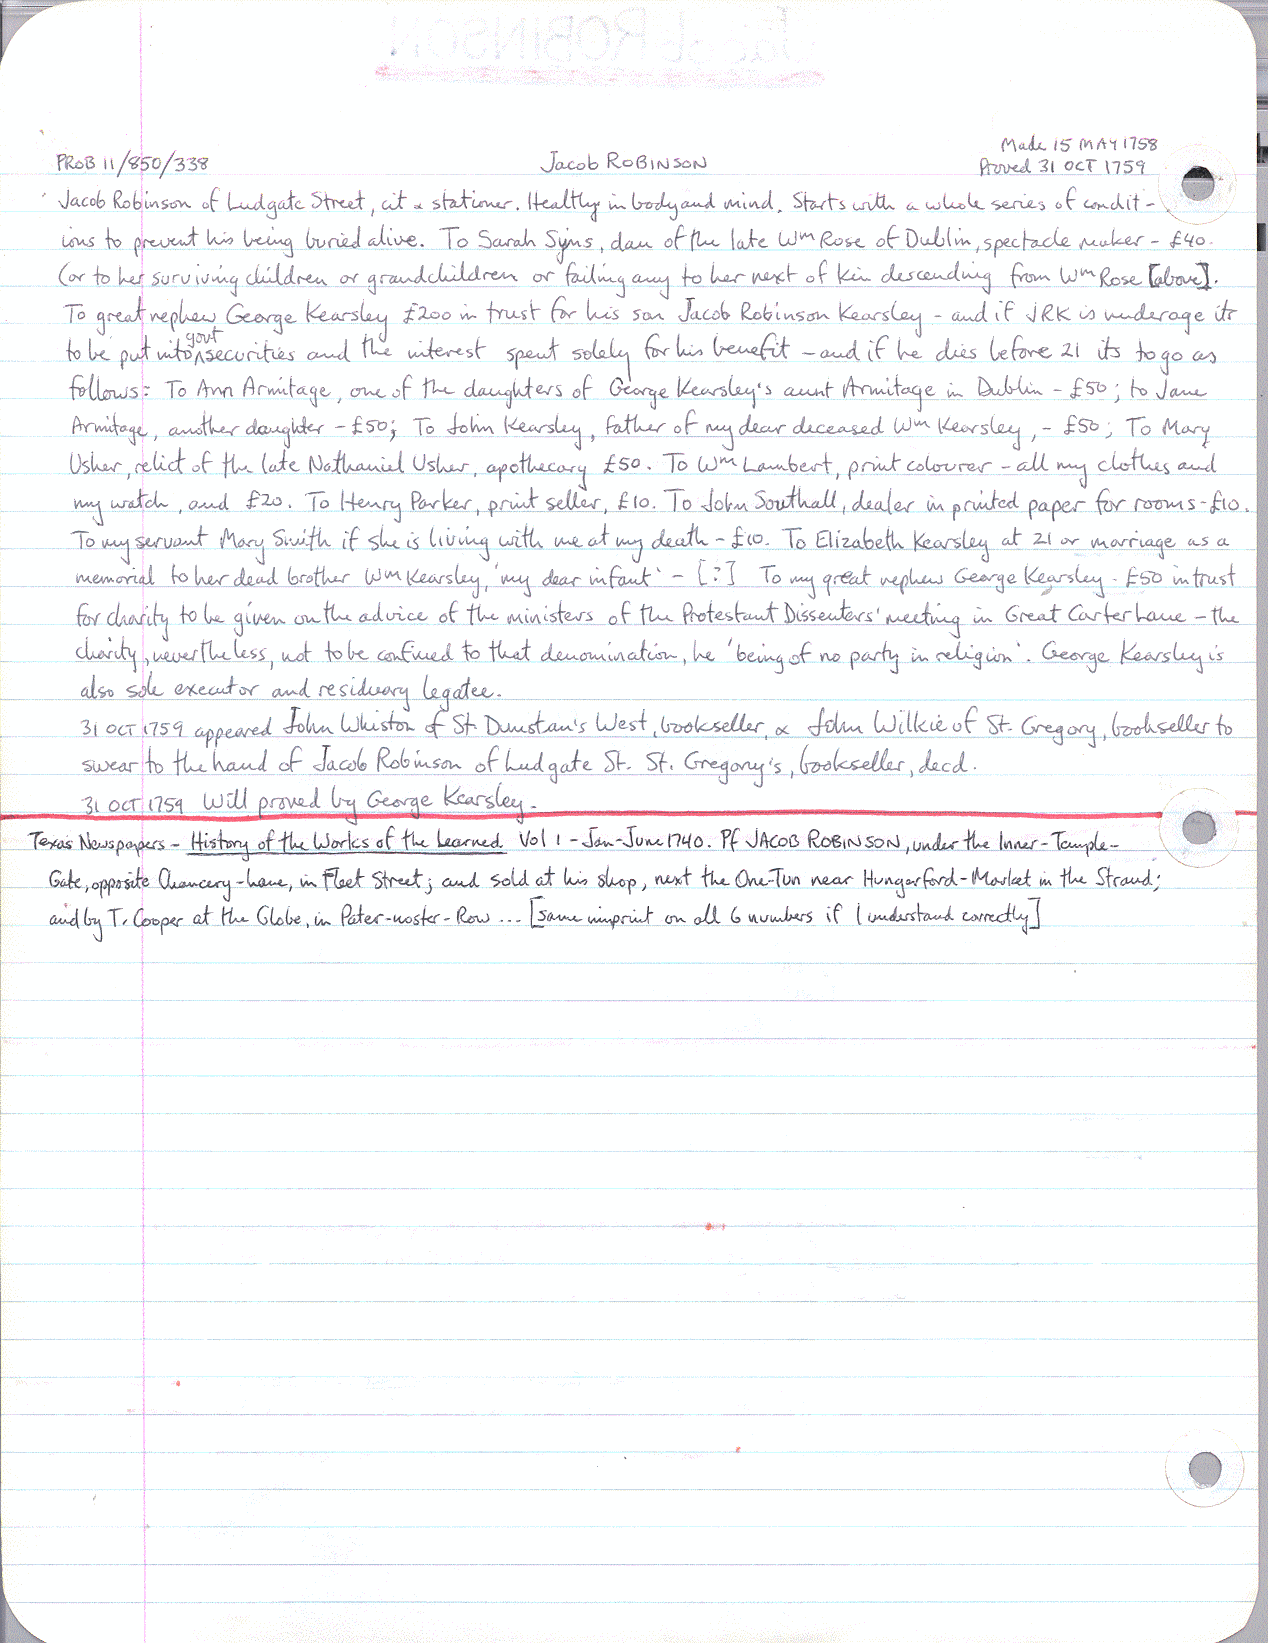 Jacob ROBINSON
Made 15 MAY 1758
PROB 11/850/338 Jacob ROBINSON Proved 31 OCT 1759
Jacob Robinson of Ludgate Street, cit & stationer. Healthy in body and mind. Starts with a whole series of condit-
ions to prevent his being buried alive. To Sarah Syms, dau of the late Wm Rose of Dublin, spectacle maker - £40.
(or to her surviving children or grandchildren or failing any to her next of kin descending from Wm Rose [above].
To great nephew George Kearsley £200 in trust for his son Jacob Robinson Kearsley - and if JRK is underage its
to be put into govt securities and the interest spent solely for his benefit - and if he dies before 21 its to go as
follows: To Ann Armitage, one of the daughters of George Kearsley's aunt Armitage in Dublin - £50; to Jane
Armitage, another daughter - £50; To John Kearsley, father of my dear deceased Wm Kearsley, - £50; To Mary
Usher, relict of the late Nathaniel Usher, apothecary £50. To Wm Lambert, print colourer - all my clothes and
my watch, and £20. To Henry Parker, print seller, £10. To John Southall, dealer in printed paper for rooms - £10.
To my servant Mary Smith if she is living with me at my death - £10. To Elizabeth Kearsley at 21 or marriage as a
memorial to her dead brother Wm Kearsley, 'my dear infant' - [?] To my great nephew George Kearsley - £50 in trust
for charity to be given on the advice of the ministers of the Protestant Dissenters' meeting in Great Carter Lane - the
charity, nevertheless, not to be confined to that denomination, he 'being of no party in religion'. George Kearsley is
also sole executor and residuary legatee.
31 OCT 1759 appeared John Whiston of St Dunstan's West, bookseller, & John Wilkie of St. Gregory, bookseller to
swear to the hand of Jacob Robinson of Ludgate St. St. Gregory's, bookseller, decd.
31 OCT 1759 Will proved by George Kearsley.
Texas Newspapers - History of the Works of the Learned. Vol 1 - Jan-June 1740. Pf JACOB ROBINSON, under the Inner-Temple-
Gate, opposite Chancery-Lane, in Fleet Street; and sold at his shop, next the One-Tun near Hungerford-Market in the Strand;
and by T. Cooper at the Globe, in Pater-noster-Row ... [same imprint on all 6 numbers if I understand correctly]